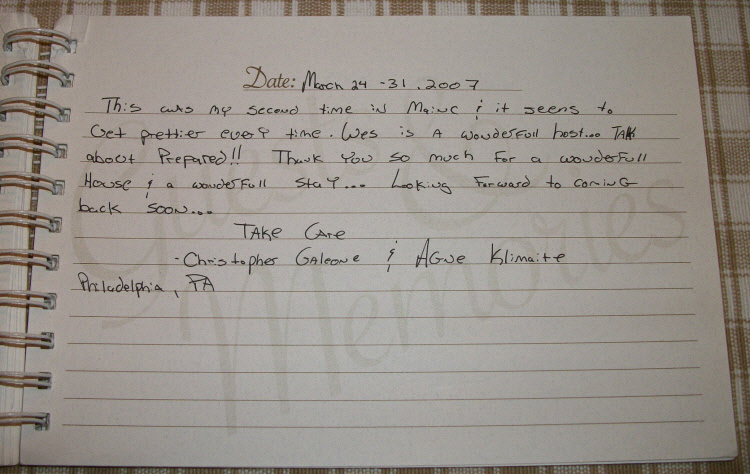 Date: March 24 - 31, 2007
This was my second time in Maine & it seems to
Get prettier every time. Wes is A wonderfull host... TAlk
about Prepared!! Thank you so much for a wonderfull
House & a wonderfull stay... Looking Forward to coming
back soon...
TAKE Care
- Christopher Galeone & Agne Klimaite
Philadelphia, PA
Guests
Memories